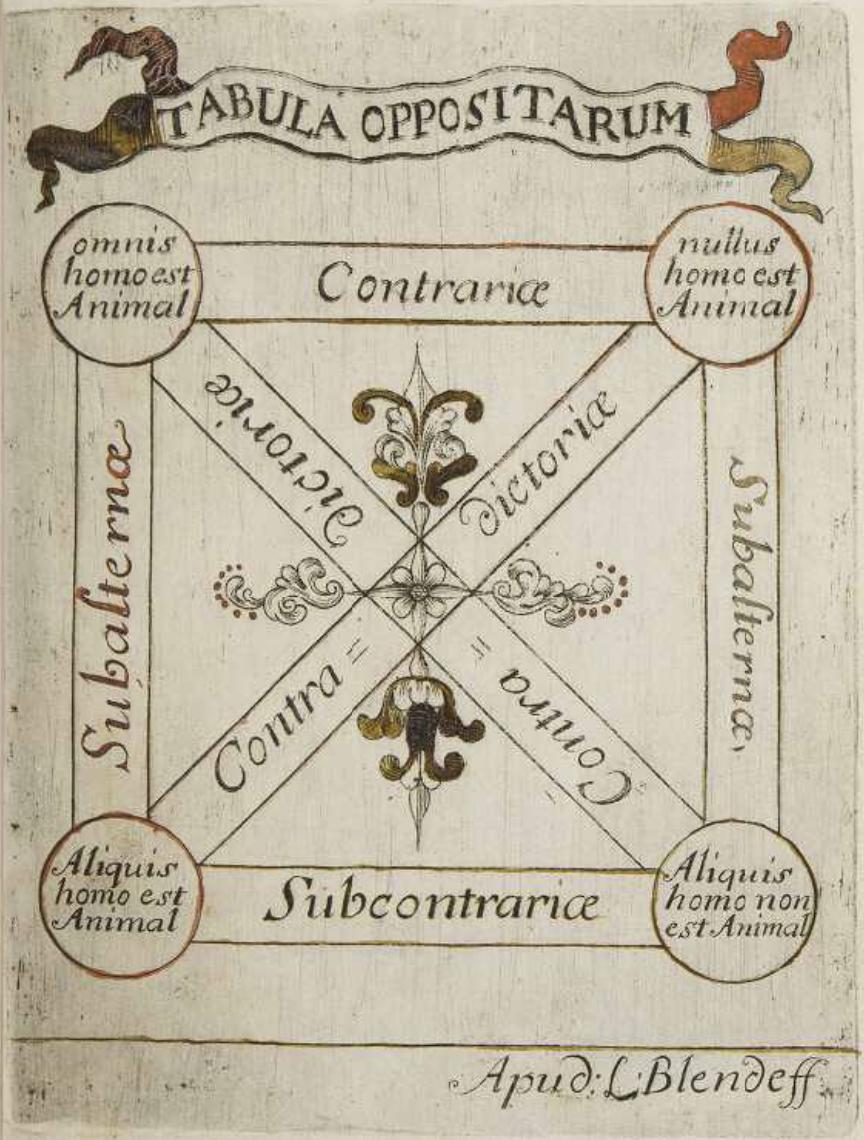 TABULA OPPOSITARUM
omnis
homo est
Animal
Contrariæ
nullus
homo est
Animal
dictoriæ
dictoriæ
Subalternæ
Subalternæ,
Contra =
= Contra
Aliquis
homo est
Animal
Subcontrariæ
Aliquis
homo non
est Animal
Apud: L: Blendeff